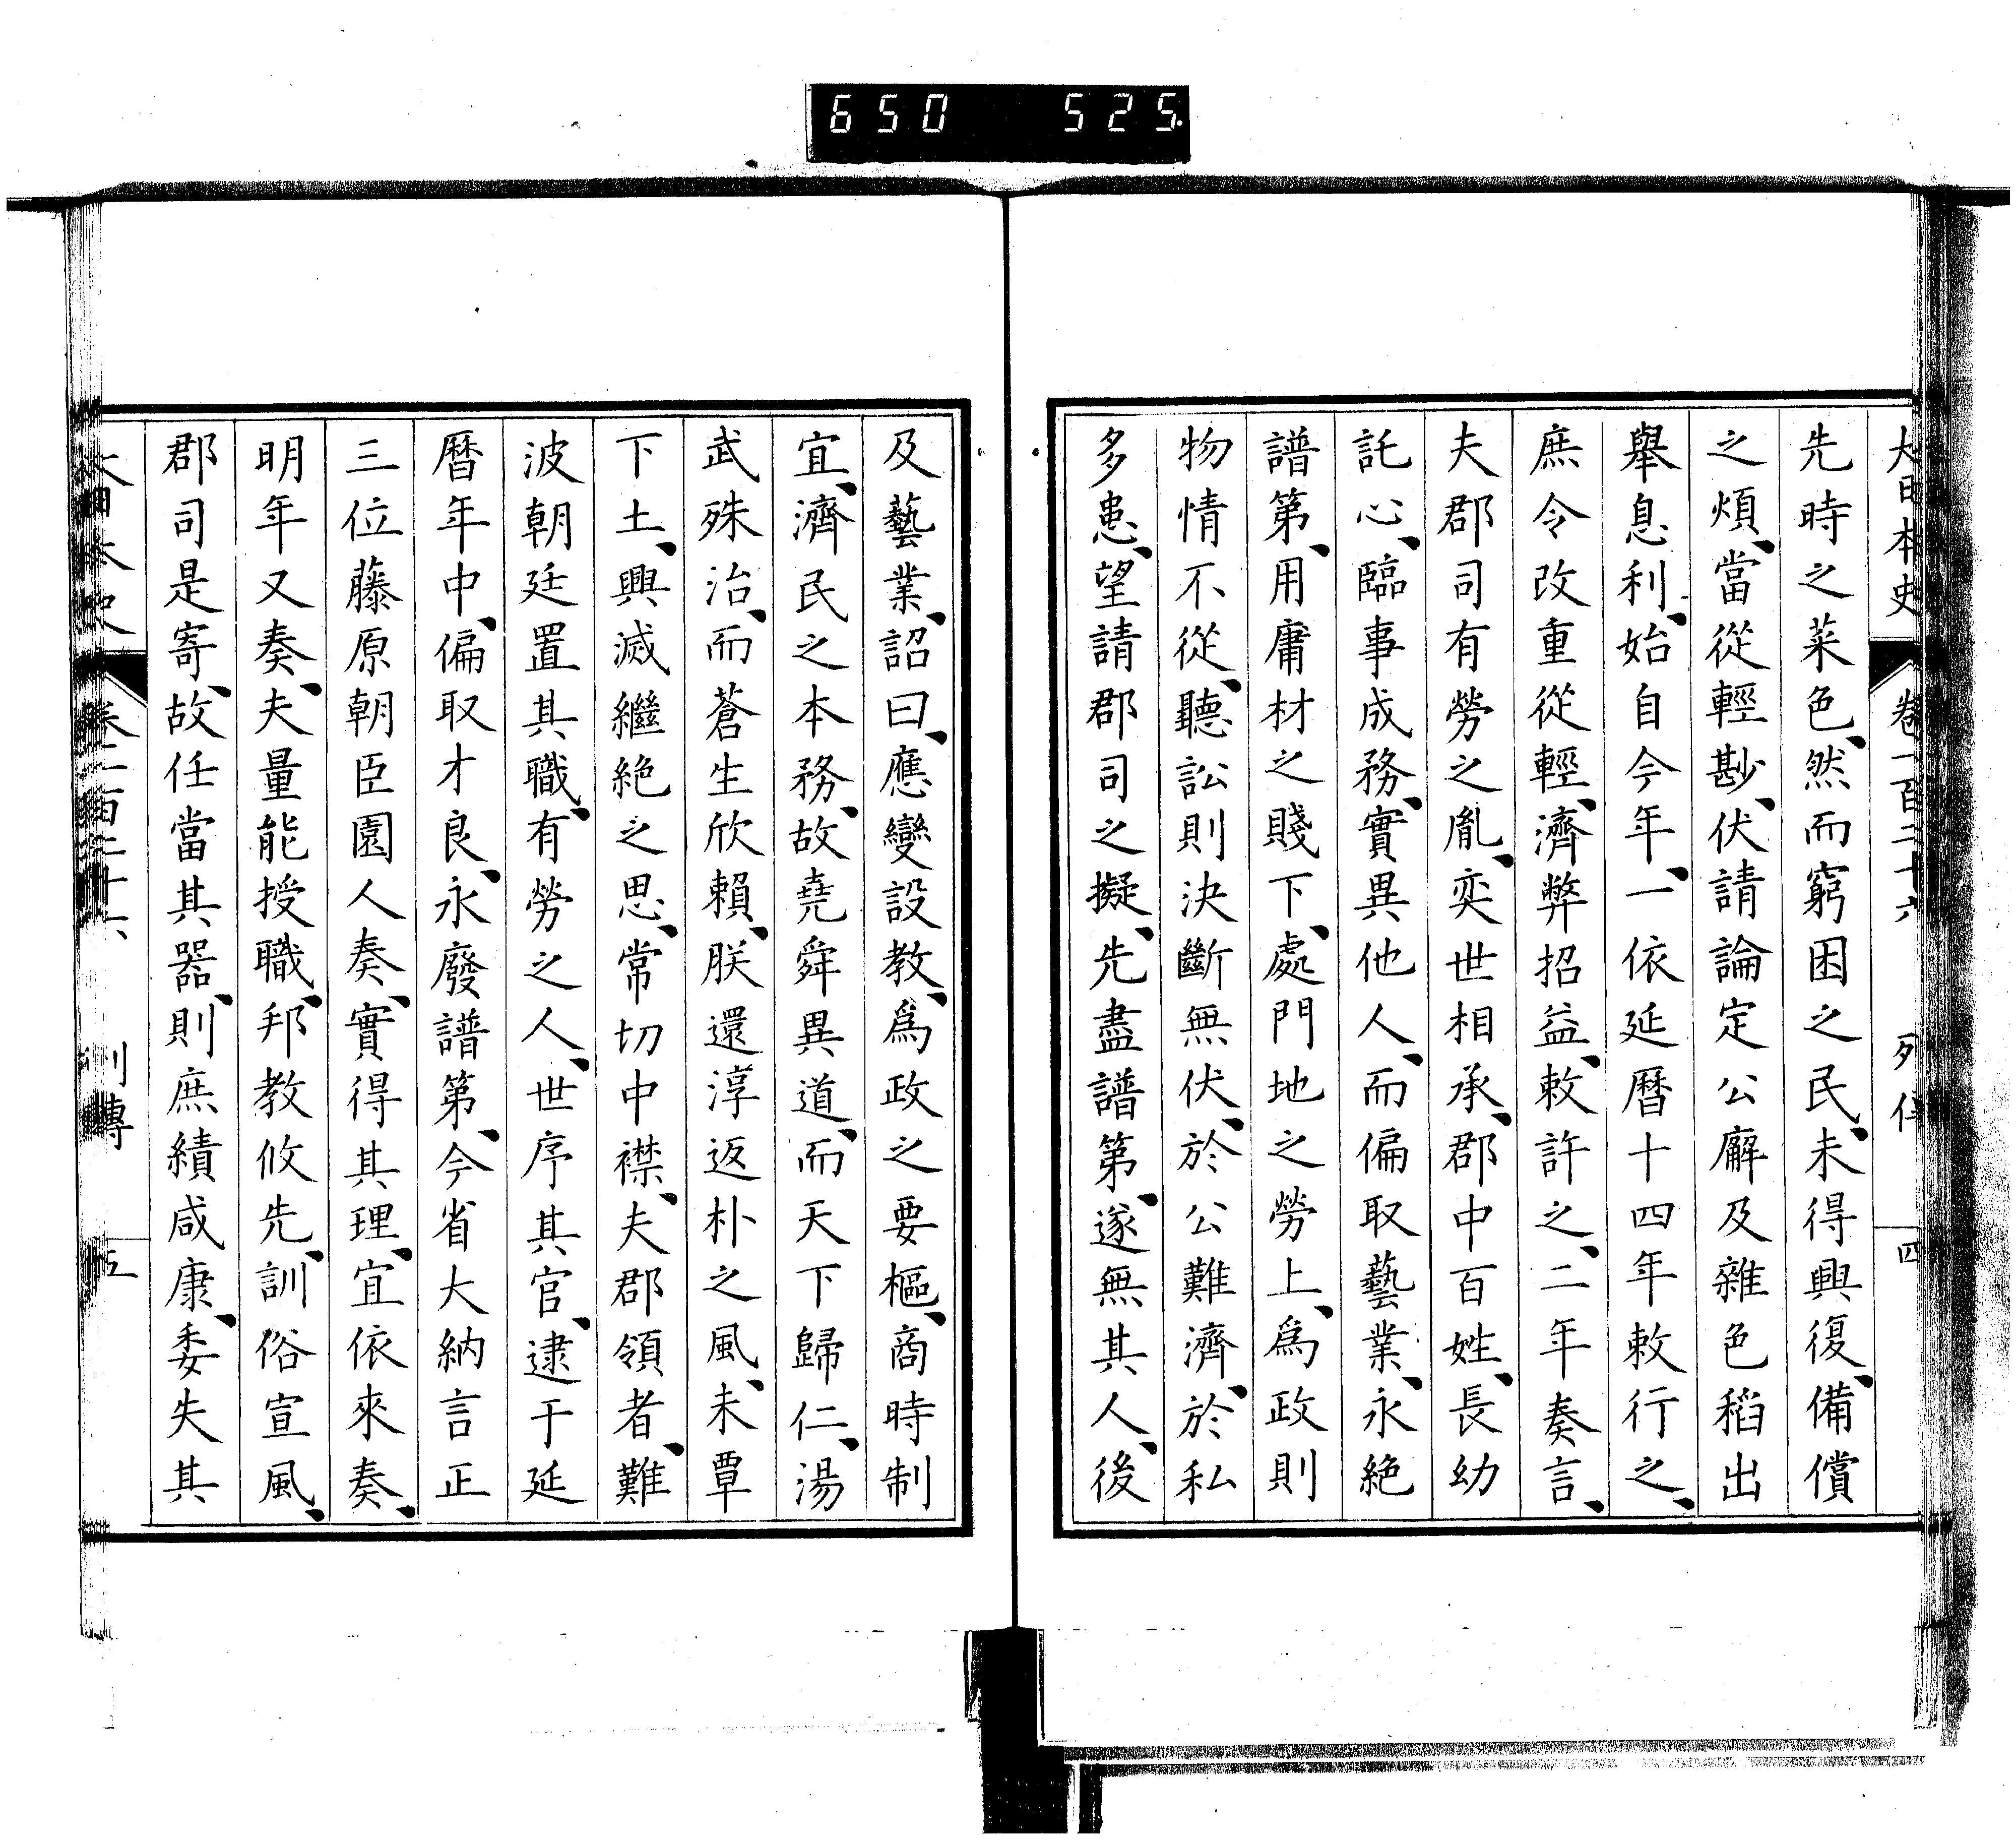 650 525
大日本史 卷一百二十六 列傳 四
先時之菜色、然而窮困之民、未得興復、備償
之煩、當從輕尠、伏請論定公廨及雜色稻出
擧息利、始自今年、一依延曆十四年敕行之、
庶令改重從輕、濟弊招益、敕許之、二年奏言、
夫郡司有勞之胤、奕世相承、郡中百姓、長幼
託心、臨事成務、實異他人、而偏取藝業、永絕
譜第、用庸材之賤下、處門地之勞上、爲政則
物情不從、聽訟則決斷無伏、於公難濟、於私
多患、望請郡司之擬、先盡譜第、遂無其人、後
及藝業、詔曰、應變設教、爲政之要樞、商時制
宜、濟民之本務、故堯舜異道、而天下歸仁、湯
武殊治、而蒼生欣賴、朕還淳返朴之風、未覃
下土、興滅繼絕之思、常切中襟、夫郡領者、難
波朝廷置其職、有勞之人、世序其官、逮于延
曆年中、偏取才良、永廢譜第、今省大納言正
三位藤原朝臣園人奏、實得其理、宜依來奏、
明年又奏、夫量能授職、邦教攸先、訓俗宣風、
郡司是寄、故任當其器、則庶績咸康、委失其
大日本史 卷一百二十六 列傳 五